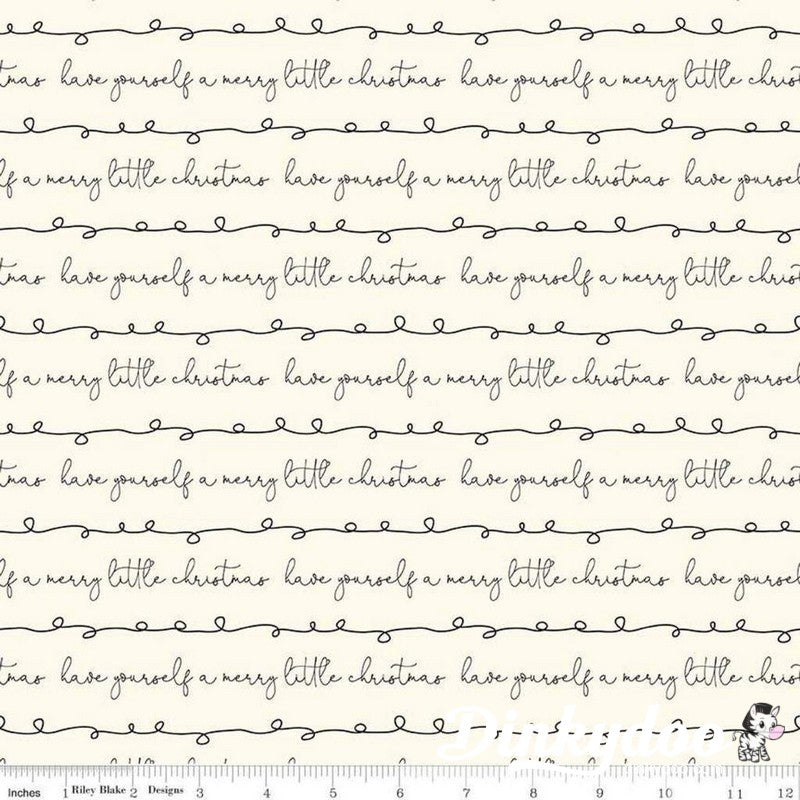 tmas have yourself a merry little christmas have yourself a merry little christ
lf a merry little christmas have yourself a merry little christmas have yourse
tmas have yourself a merry little christmas have yourself a merry little christ
lf a merry little christmas have yourself a merry little christmas have yourse
tmas have yourself a merry little christmas have yourself a merry little christ
lf a merry little christmas have yourself a merry little christmas have yourse
tmas have yourself a merry little christmas have yourself a merry little christ
Dinkydoo
Inches 1 Riley Blake 2 Designs 3 4 5 6 7 8 9 10 11 12